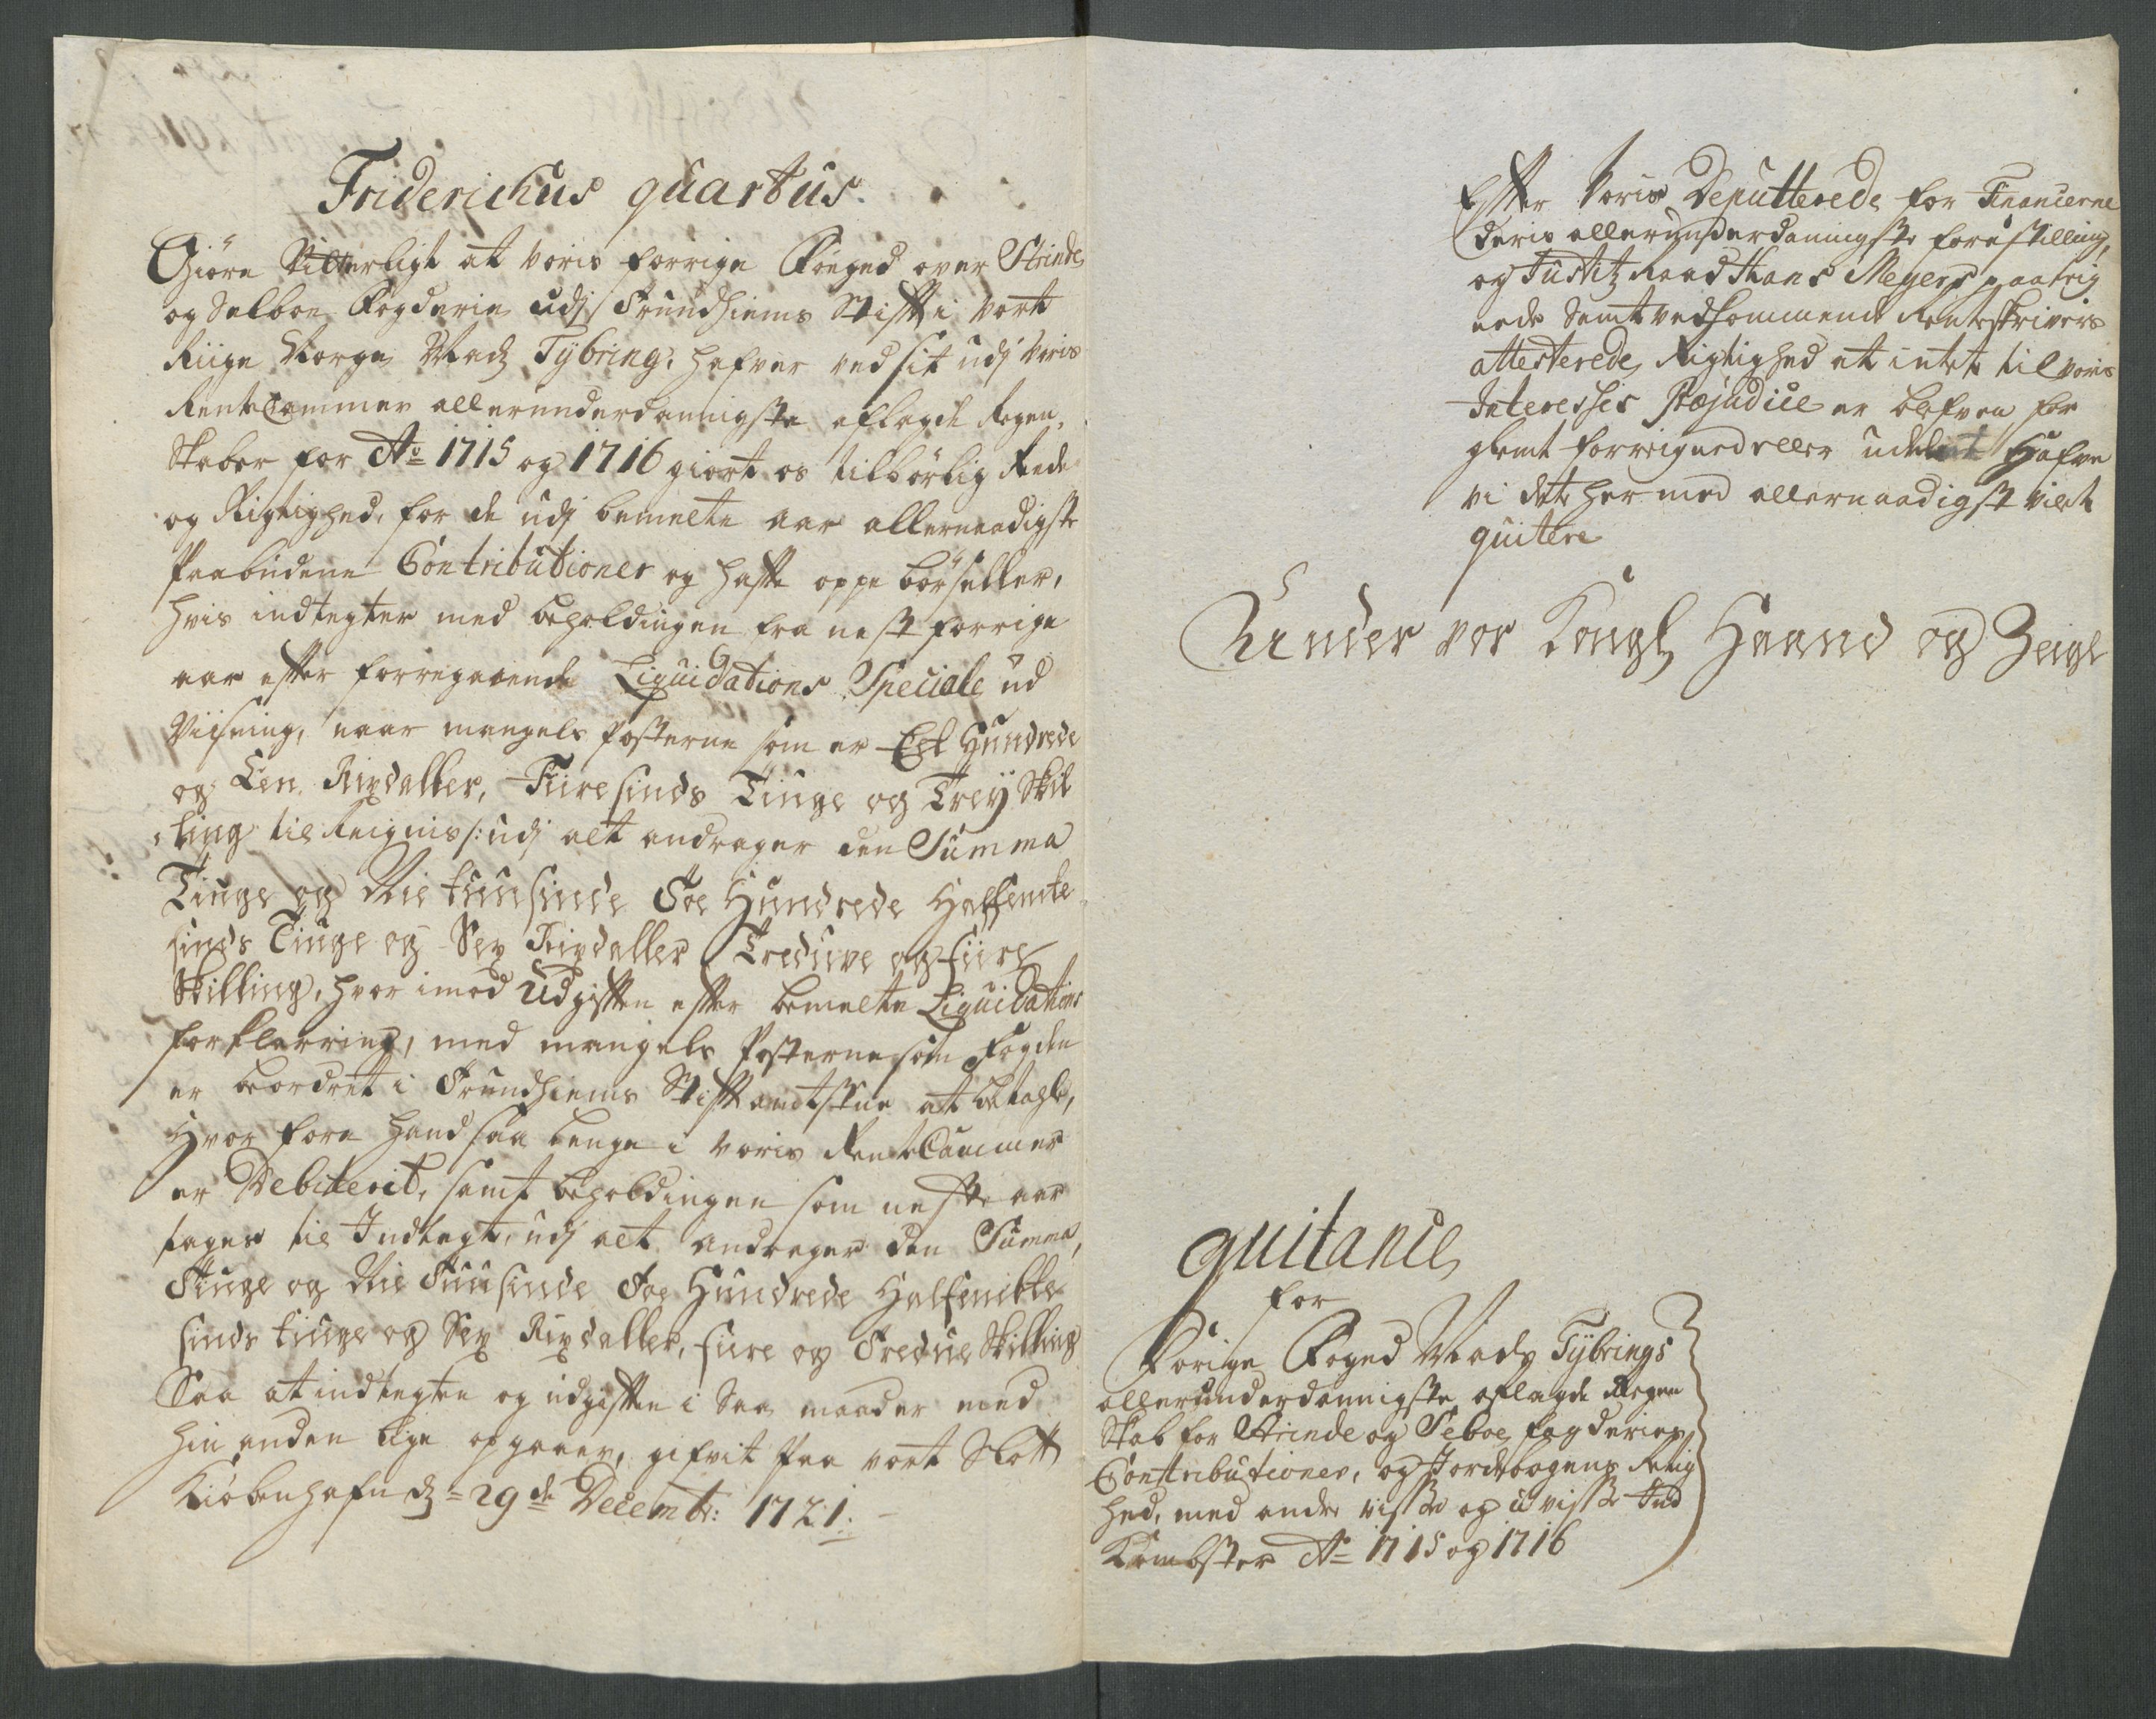 Friderichus quartus.
Giöre Vitterligt at voris forrige Foeged over Strinde
og Selboe Fogderie udj Trundhiems Stift i vort
Riige Norge Madz Tÿbring, hafver ved sit udj Voris
RenteCammer allerunderdannigste aflagde Regen-
skaber for Ao 1715 og 1716 giort os tilbörlig Rede
og Rigtighed, for de udj bemelte aar allernaadigste
Paabudene Contributioner og hafte oppebörseller,
hvis indtegter med beholdingen fra nest forrige
aar efter forregaaende Liquidations Speciale ud
Viisning, naar mangels Posterne som er Eet Hundrede
og Een Rixdaller, Fiiresinds Tiuge og Trey Skil
ling til Reignis /: udj alt andrager den Summa
Tiuge og Nie tuusinde Toe Hundrede Halfemte
sinds Tiuge og Sex Rixdaller Tredive og fiire
Skilling, hvor imod Udgiften efter bemelte Liquidations
forklarring, med mangels Posterne som Fogden
er beordret i Trundhiems Stiftamtstue at betahle,
Hvor fore hand saa lenge i voris RenteCammer
er Debiterit, samt beholdingen som neste aar
tages til Indtegt, udj alt andrager den Summa,
Tiuge og Nie Tuusinde Toe Hundrede Halfemtte
sinds tiuge og Sex Rixdaller, fiire og Tredive Skilling
Saa at indtegten og udgiften i Saa maader med
hin anden lige opgaaer, gifvit Paa vort Slott
Kiöbenhafn dz = 29de Decembr: 1721.
Efter Voris Deputterede for Financerne
deris allerunderdanningste forestilling,
og Justitz Raad Hans Meyers paateig
nede Samt vedkommende Renteskrivers
attesterede Rigtighed at intet til voris
Interesses Præjudice er blefven for
glemt forreigned eller udeladt Hafve
vi dette her med allernaadigst vilet
quitere
Under vor Kongl Haand og Zeigl
quitance
for
Forige Foged Madz Tÿbrings
allerunderdannigste aflagde Regen
skab for Strinde og Selboe fogderies
Contributioner, og Jordebogens Rettig
hed, med andre visse og uvisse Ind
Kombster Ao 1715 og 1716